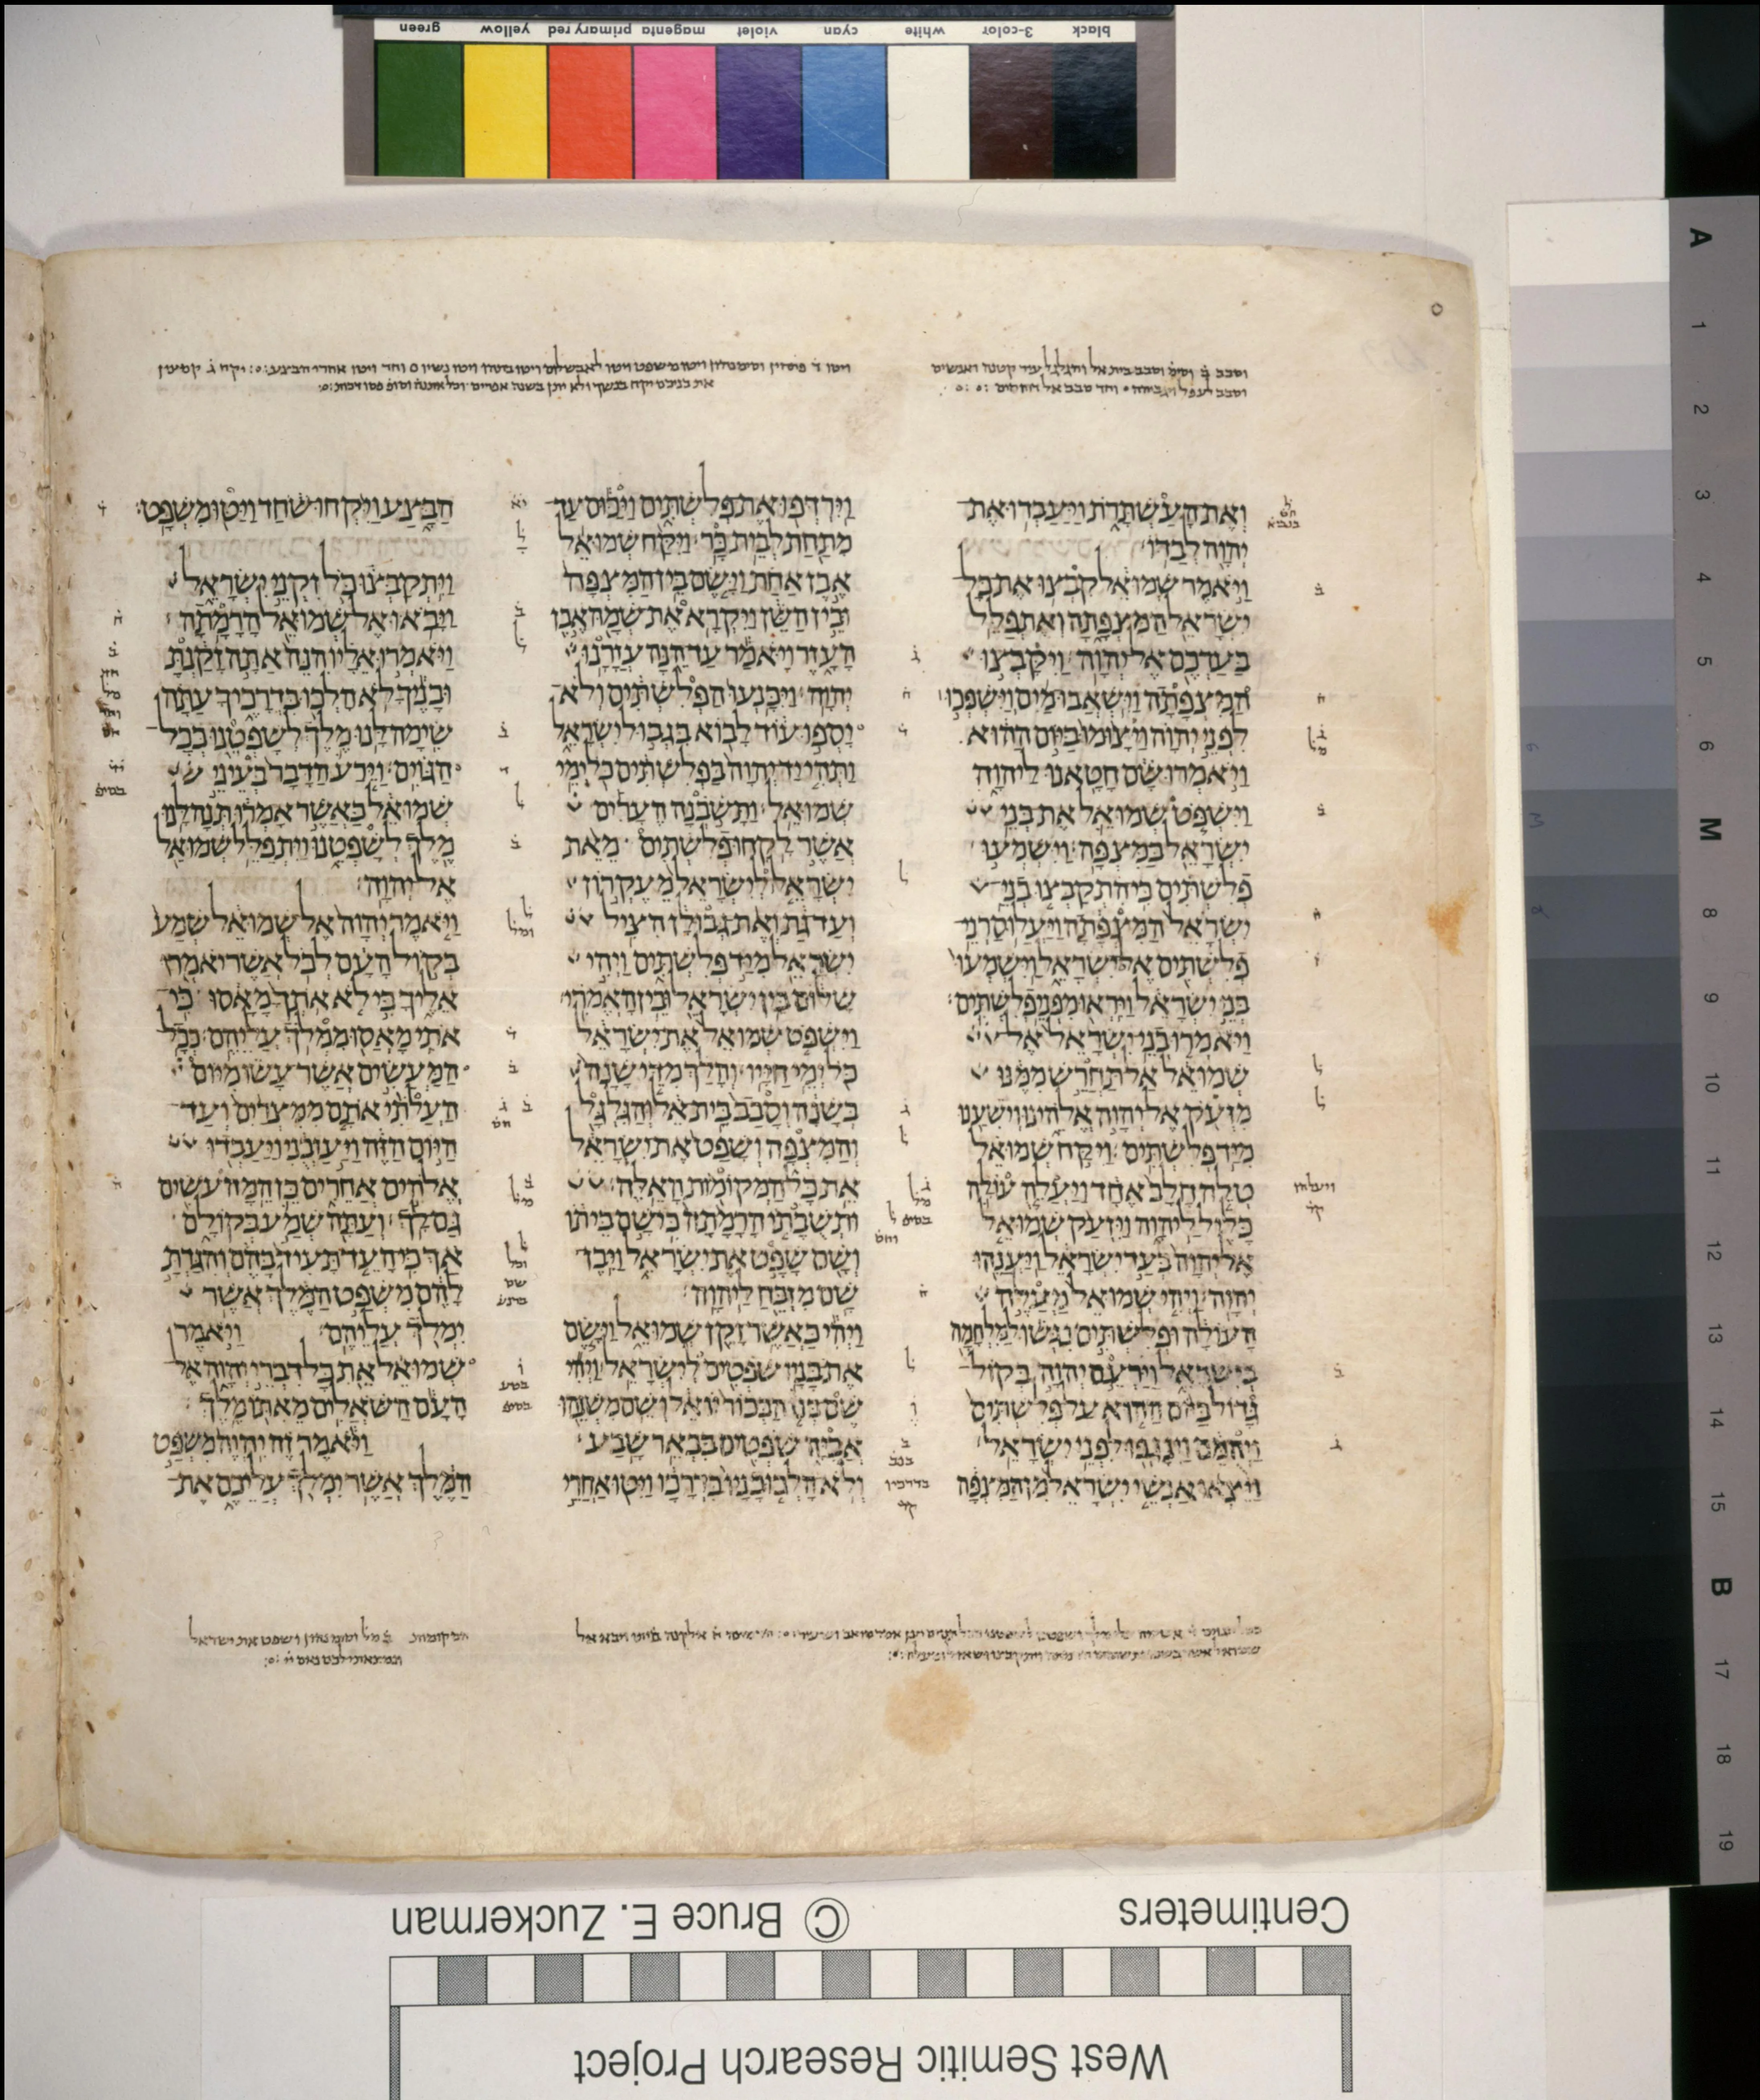 green yellow primary red magenta violet cyan white 3-color black
וְאֶת הָעַשְׁתָּרֹת וַיַּעַבְדוּ אֶת
יְהוָה לְבַדּוֹ׃
וַיֹּאמֶר שְׁמוּאֵל קִבְצוּ אֶת כָּל
יִשְׂרָאֵל הַמִּצְפָּתָה וְאֶתְפַּלֵּל
בַּעַדְכֶם אֶל יְהוָה׃ וַיִּקָּבְצוּ
הַמִּצְפָּתָה וַיִּשְׁאֲבוּ מַיִם וַיִּשְׁפְּכוּ
לִפְנֵי יְהוָה וַיָּצוּמוּ בַּיּוֹם הַהוּא
וַיֹּאמְרוּ שָׁם חָטָאנוּ לַיהוָה
וַיִּשְׁפֹּט שְׁמוּאֵל אֶת בְּנֵי
יִשְׂרָאֵל בַּמִּצְפָּה׃ וַיִּשְׁמְעוּ
פְלִשְׁתִּים כִּי הִתְקַבְּצוּ בְנֵי
יִשְׂרָאֵל הַמִּצְפָּתָה וַיַּעֲלוּ סַרְנֵי
פְלִשְׁתִּים אֶל יִשְׂרָאֵל וַיִּשְׁמְעוּ
בְּנֵי יִשְׂרָאֵל וַיִּרְאוּ מִפְּנֵי פְלִשְׁתִּים׃
וַיֹּאמְרוּ בְנֵי יִשְׂרָאֵל אֶל
שְׁמוּאֵל אַל תַּחֲרֵשׁ מִמֶּנּוּ
מִזְּעֹק אֶל יְהוָה אֱלֹהֵינוּ וְיֹשִׁעֵנוּ
מִיַּד פְּלִשְׁתִּים׃ וַיִּקַּח שְׁמוּאֵל
טְלֵה חָלָב אֶחָד וַיַּעֲלֵה עוֹלָה
כָּלִיל לַיהוָה וַיִּזְעַק שְׁמוּאֵל
אֶל יְהוָה בְּעַד יִשְׂרָאֵל וַיַּעֲנֵהוּ
יְהוָה׃ וַיְהִי שְׁמוּאֵל מַעֲלֶה
הָעוֹלָה וּפְלִשְׁתִּים נִגְּשׁוּ לַמִּלְחָמָה
בְּיִשְׂרָאֵל וַיַּרְעֵם יְהוָה בְּקוֹל
גָּדוֹל בַּיּוֹם הַהוּא עַל פְּלִשְׁתִּים
וַיְהֻמֵּם וַיִּנָּגְפוּ לִפְנֵי יִשְׂרָאֵל׃
וַיֵּצְאוּ אַנְשֵׁי יִשְׂרָאֵל מִן הַמִּצְפָּה
וַיִּרְדְּפוּ אֶת פְּלִשְׁתִּים וַיַּכּוּם עַד
מִתַּחַת לְבֵית כָּר׃ וַיִּקַּח שְׁמוּאֵל
אֶבֶן אַחַת וַיָּשֶׂם בֵּין הַמִּצְפָּה
וּבֵין הַשֵּׁן וַיִּקְרָא אֶת שְׁמָהּ אֶבֶן
הָעָזֶר וַיֹּאמַר עַד הֵנָּה עֲזָרָנוּ
יְהוָה׃ וַיִּכָּנְעוּ הַפְּלִשְׁתִּים וְלֹא
יָסְפוּ עוֹד לָבוֹא בִּגְבוּל יִשְׂרָאֵל
וַתְּהִי יַד יְהוָה בַּפְּלִשְׁתִּים כֹּל יְמֵי
שְׁמוּאֵל׃ וַתָּשֹׁבְנָה הֶעָרִים
אֲשֶׁר לָקְחוּ פְלִשְׁתִּים מֵאֵת
יִשְׂרָאֵל לְיִשְׂרָאֵל מֵעֶקְרוֹן
וְעַד גַּת וְאֶת גְּבוּלָן הִצִּיל
יִשְׂרָאֵל מִיַּד פְּלִשְׁתִּים וַיְהִי
שָׁלוֹם בֵּין יִשְׂרָאֵל וּבֵין הָאֱמֹרִי׃
וַיִּשְׁפֹּט שְׁמוּאֵל אֶת יִשְׂרָאֵל
כֹּל יְמֵי חַיָּיו׃ וְהָלַךְ מִדֵּי שָׁנָה
בְּשָׁנָה וְסָבַב בֵּית אֵל וְהַגִּלְגָּל
וְהַמִּצְפָּה וְשָׁפַט אֶת יִשְׂרָאֵל
אֵת כָּל הַמְּקוֹמוֹת הָאֵלֶּה׃
וּתְשֻׁבָתוֹ הָרָמָתָה כִּי שָׁם בֵּיתוֹ
וְשָׁם שָׁפָט אֶת יִשְׂרָאֵל וַיִּבֶן
שָׁם מִזְבֵּחַ לַיהוָה׃
וַיְהִי כַּאֲשֶׁר זָקֵן שְׁמוּאֵל וַיָּשֶׂם
אֶת בָּנָיו שֹׁפְטִים לְיִשְׂרָאֵל׃ וַיְהִי
שֶׁם בְּנוֹ הַבְּכוֹר יוֹאֵל וְשֵׁם מִשְׁנֵהוּ
אֲבִיָּה שֹׁפְטִים בִּבְאֵר שָׁבַע׃
וְלֹא הָלְכוּ בָנָיו בִּדְרָכָו וַיִּטּוּ אַחֲרֵי
הַבָּצַע וַיִּקְחוּ שֹׁחַד וַיַּטּוּ מִשְׁפָּט׃
וַיִּתְקַבְּצוּ כֹּל זִקְנֵי יִשְׂרָאֵל
וַיָּבֹאוּ אֶל שְׁמוּאֵל הָרָמָתָה׃
וַיֹּאמְרוּ אֵלָיו הִנֵּה אַתָּה זָקַנְתָּ
וּבָנֶיךָ לֹא הָלְכוּ בִּדְרָכֶיךָ עַתָּה
שִׂימָה לָּנוּ מֶלֶךְ לְשָׁפְטֵנוּ כְּכָל
הַגּוֹיִם׃ וַיֵּרַע הַדָּבָר בְּעֵינֵי
שְׁמוּאֵל כַּאֲשֶׁר אָמְרוּ תְּנָה לָּנוּ
מֶלֶךְ לְשָׁפְטֵנוּ וַיִּתְפַּלֵּל שְׁמוּאֵל
אֶל יְהוָה׃
וַיֹּאמֶר יְהוָה אֶל שְׁמוּאֵל שְׁמַע
בְּקוֹל הָעָם לְכֹל אֲשֶׁר יֹאמְרוּ
אֵלֶיךָ כִּי לֹא אֹתְךָ מָאָסוּ כִּי
אֹתִי מָאֲסוּ מִמְּלֹךְ עֲלֵיהֶם׃ כְּכָל
הַמַּעֲשִׂים אֲשֶׁר עָשׂוּ מִיּוֹם
הַעֲלֹתִי אֹתָם מִמִּצְרַיִם וְעַד
הַיּוֹם הַזֶּה וַיַּעַזְבֻנִי וַיַּעַבְדוּ
אֱלֹהִים אֲחֵרִים כֵּן הֵמָּה עֹשִׂים
גַּם לָךְ׃ וְעַתָּה שְׁמַע בְּקוֹלָם
אַךְ כִּי הָעֵד תָּעִיד בָּהֶם וְהִגַּדְתָּ
לָהֶם מִשְׁפַּט הַמֶּלֶךְ אֲשֶׁר
יִמְלֹךְ עֲלֵיהֶם׃ וַיֹּאמֶר
שְׁמוּאֵל אֵת כָּל דִּבְרֵי יְהוָה אֶל
הָעָם הַשֹּׁאֲלִים מֵאִתּוֹ מֶלֶךְ׃
וַיֹּאמֶר זֶה יִהְיֶה מִשְׁפַּט
הַמֶּלֶךְ אֲשֶׁר יִמְלֹךְ עֲלֵיכֶם אֶת
A 1 2 3 4 5 6 M 8 9 10 11 12 13 14 15 B 17 18 19
Centimeters
© Bruce E. Zuckerman
West Semitic Research Project